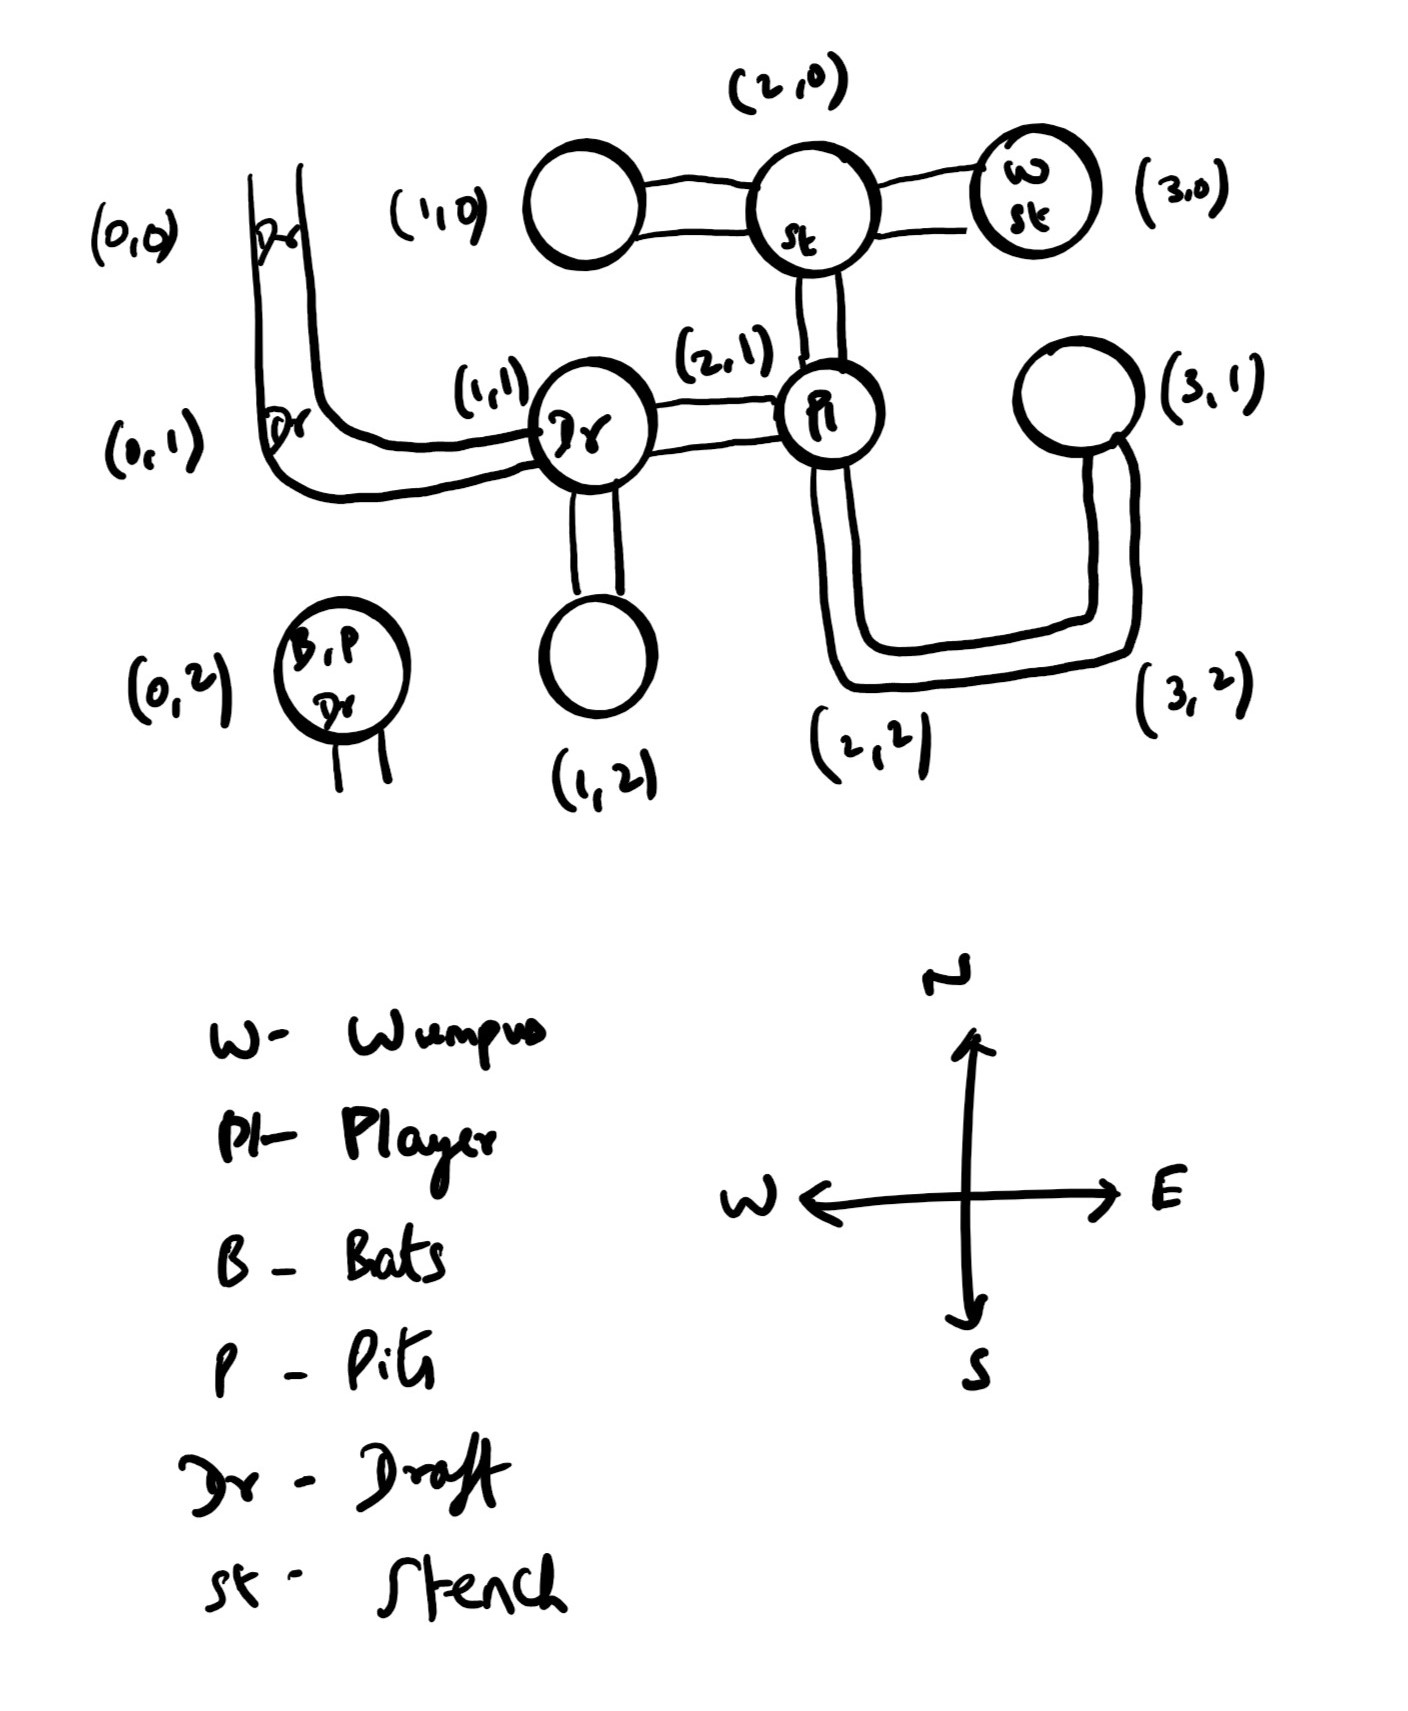 (2,0)
(0,0)
Dr
(1,0)
St
W
St
(3,0)
(0,1)
Dr
(1,1)
Dr
(2,1)
Pl
(3,1)
(0,2)
B,P
Dr
(1,2)
(2,2)
(3,2)
W- Wumpus
Pl- Player
B - Bats
P - Pits
Dr - Draft
St - Stench
N
W
E
S